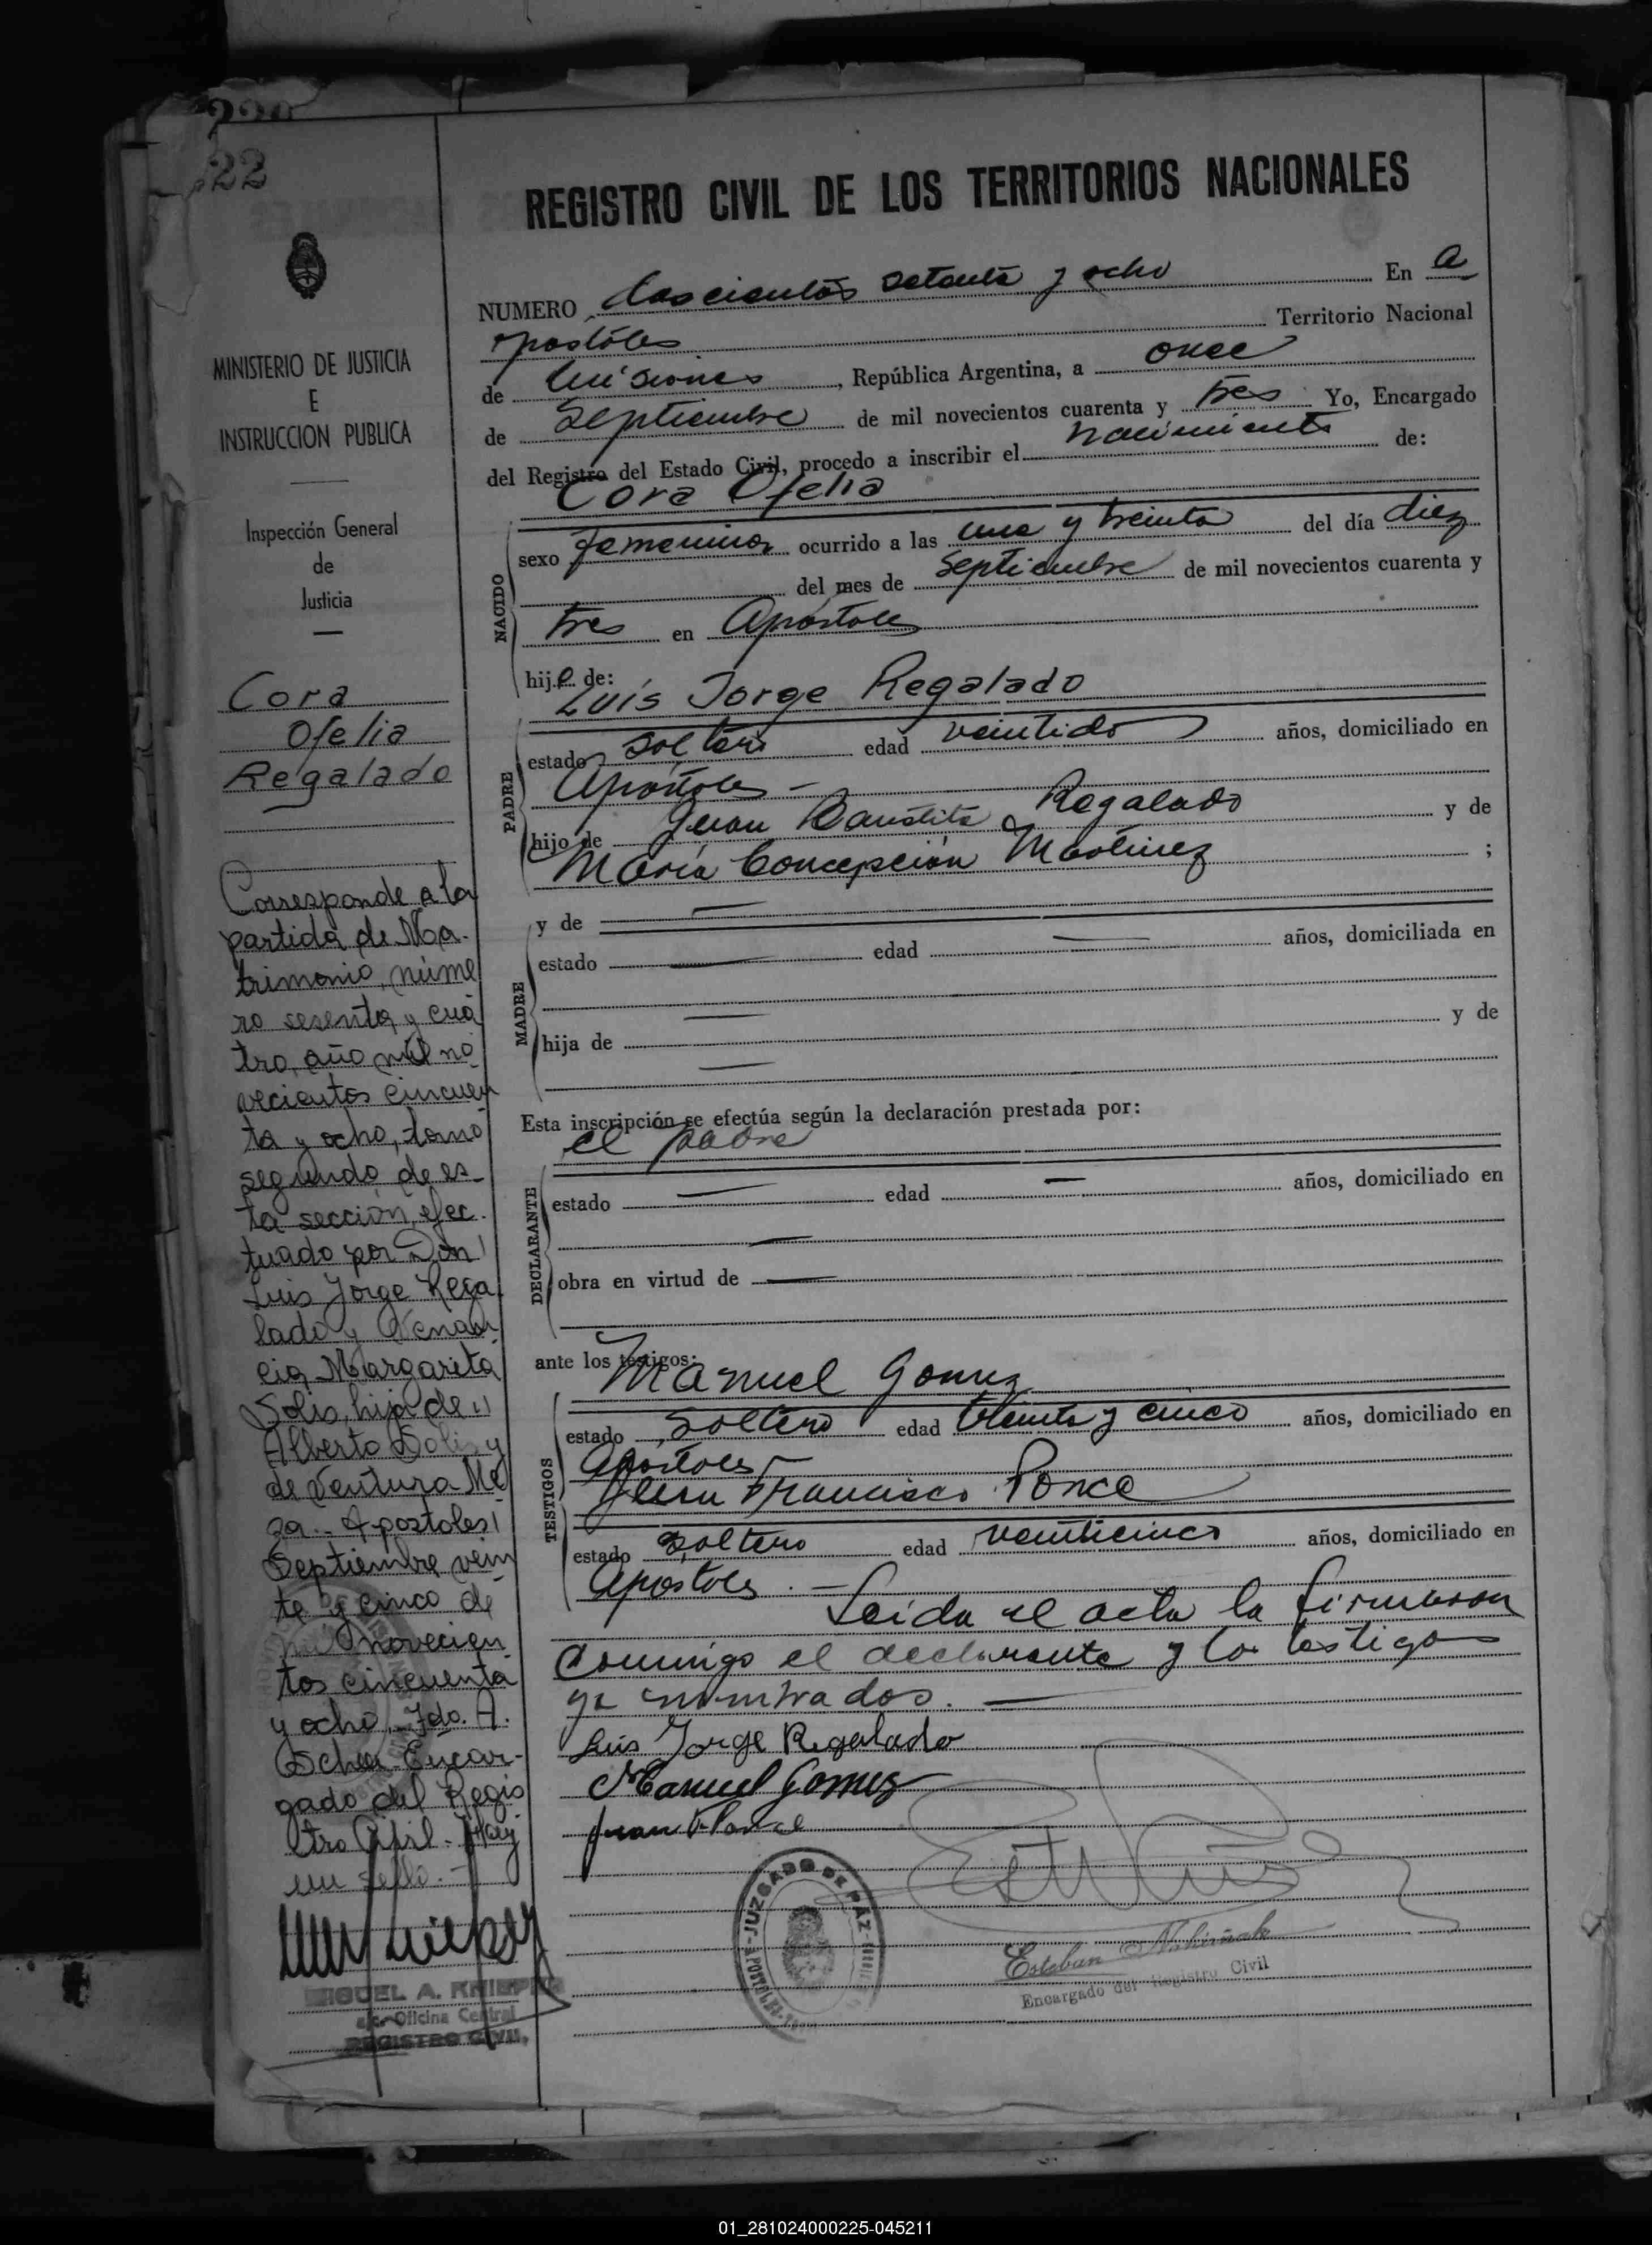 22
REGISTRO CIVIL DE LOS TERRITORIOS NACIONALES
MINISTERIO DE JUSTICIA
E
INSTRUCCION PUBLICA
Inspección General
de
Justicia
Cora
Ofelia
Regalado
Corresponde a la
partida de Ma-
trimonio, núme
ro sesenta y cua
tro, año mil no
vecientos cincuen
ta y ocho, tomo
segundo de es-
ta sección, efec-
tuado por Don
Luis Jorge Rega
lado y
Margarita
Solis, hija de
Alberto Solis y
de Ventura Me
za.- Apostoles
Septiembre vein
te y cinco de
mil novecien
tos cincuenta
y ocho.- Fdo. A.
Encar-
gado del Regis
tro Civil.- Hay
un sello.-
MIGUEL A.
Oficina Central
REGISTRO CIVIL
NUMERO doscientos setenta y ocho En A
postóles Territorio Nacional
de Misiones, República Argentina, a once
de Septiembre de mil novecientos cuarenta y tres Yo, Encargado
del Registro del Estado Civil, procedo a inscribir el nacimiento de:
Cora Ofelia
NACIDO
sexo femenino ocurrido a las una y treinta del día diez
del mes de Septiembre de mil novecientos cuarenta y
tres en Apostoles
hij a de:
Luis Jorge Regalado
PADRE
estado soltero edad veintidos años, domiciliado en
Apostoles -
hijo de Juan Bautista Regalado y de
María Concepción Martinez ;
MADRE
y de
estado edad años, domiciliada en
hija de y de
Esta inscripción se efectúa según la declaración prestada por:
el padre
DECLARANTE
estado edad años, domiciliado en
obra en virtud de
ante los testigos:
Manuel Gomez
TESTIGOS
estado Soltero edad treinta y cinco años, domiciliado en
Apostoles -
Juan Francisco Ponce
estado soltero edad veinticinco años, domiciliado en
Apostoles. - Leida el acta la firmaron
conmigo el declarante y los testigos
ya nombrados. -
Luis Jorge Regalado
Manuel Gomez
Juan F. Ponce
JUZGADO DE PAZ
APOSTOLES
Esteban
Encargado del Registro Civil
01_281024000225-045211